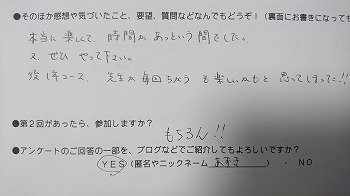 ●そのほか感想や気づいたこと、要望、質問などなんでもどうぞ！（裏面にお書きになっても
本当に楽しくて、時間があっという間でした。
又、ぜひ やって下さい。
後1年コース、先生が毎回ちがう も楽しいかもと 思ってしまった!!
●第2回があったら、参加しますか？
もちろん!!
●アンケートのご回答の一部を、ブログなどでご紹介してもよろしいですか？
YES（匿名やニックネーム あずき ） ・ NO